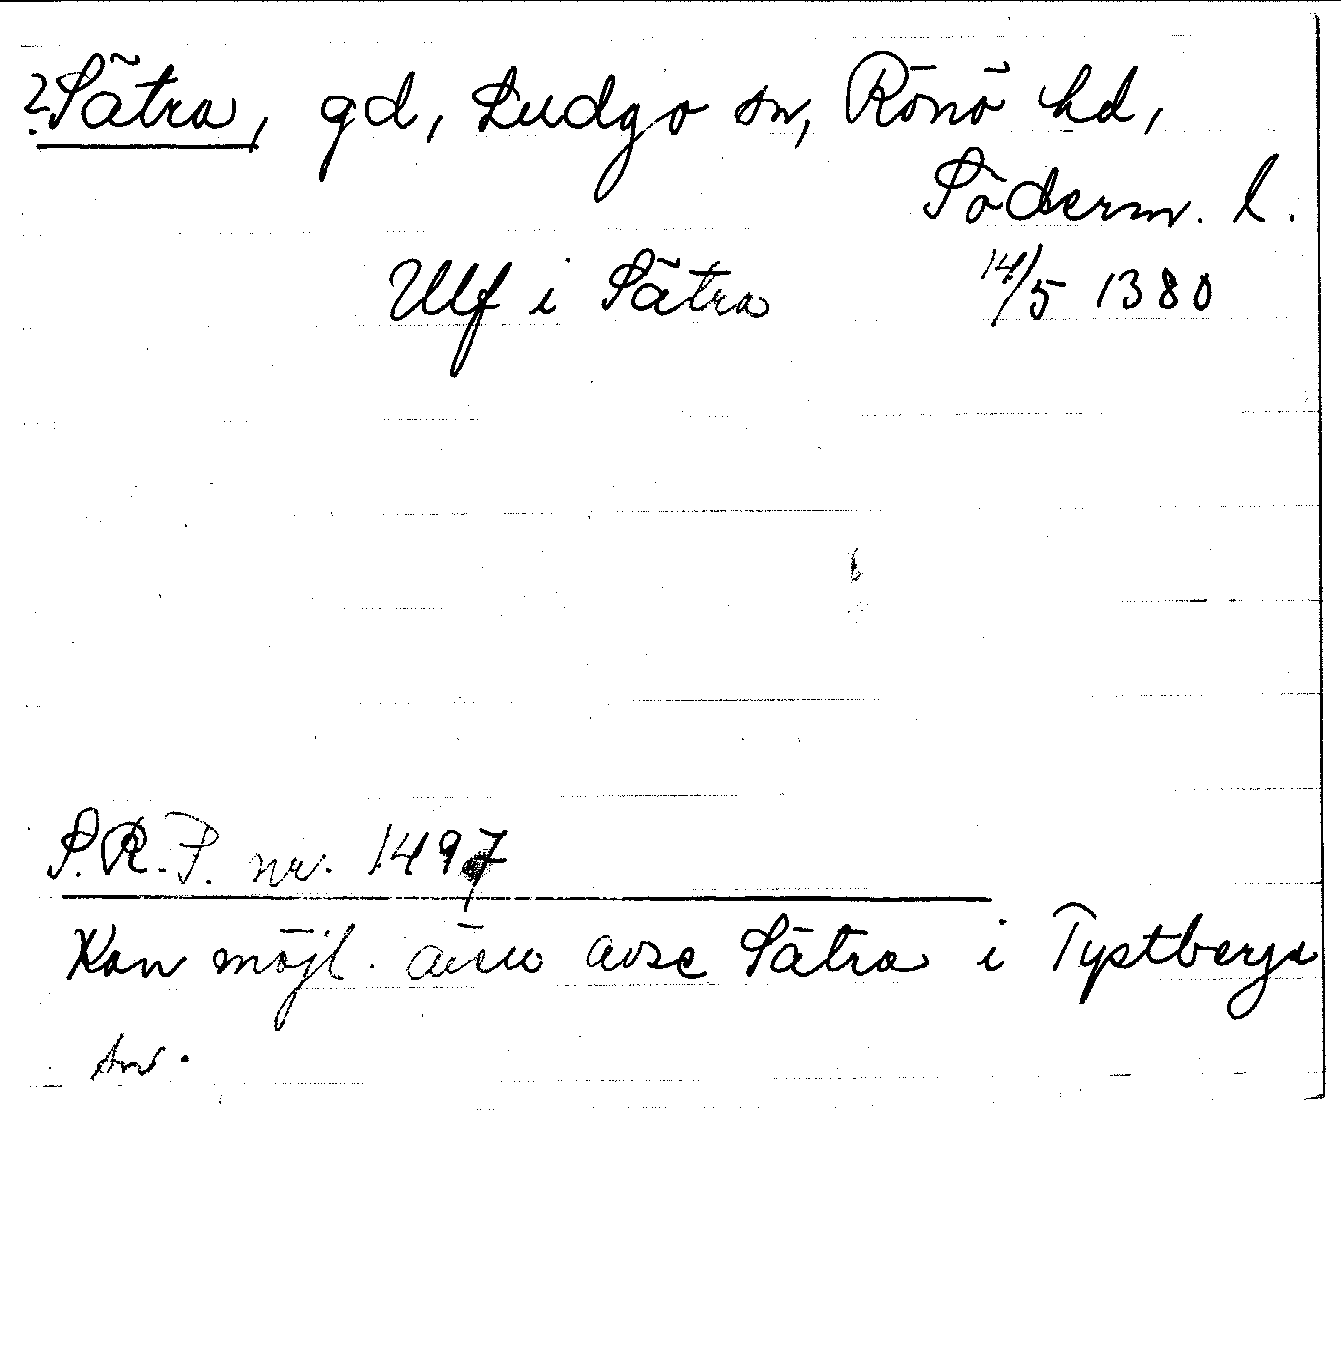 ? Sätra, gd, Ludgo sn, Rönö hd,
Söderm. l.
Ulf i Sätra 14/5 1380
S.R.P. nr. 1497
Kan möjl. även avse Sätra i Tystberga
sn.